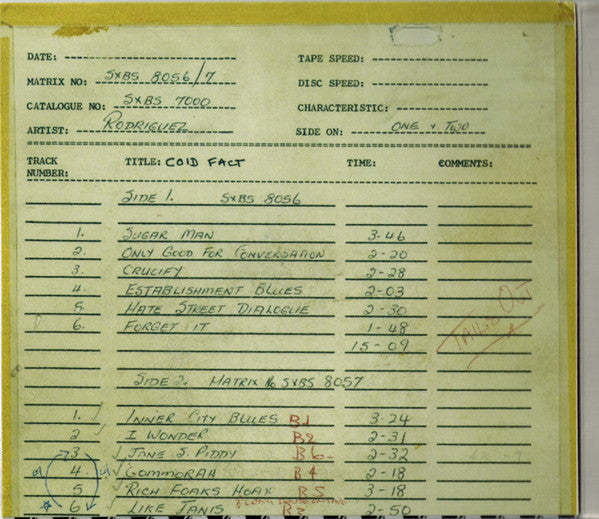 DATE:
TAPE SPEED:
MATRIX NO: SXBS 8056/7
DISC SPEED:
CATALOGUE NO: SXBS 7000
CHARACTERISTIC:
ARTIST: RODRIGUEZ
SIDE ON: ONE + TWO
TRACK NUMBER: TITLE: COLD FACT TIME: COMMENTS:
SIDE 1. SXBS 8056
1. SUGAR MAN 3-46
2. ONLY GOOD FOR CONVERSATION 2-20
3. CRUCIFY 2-28
4. ESTABLISHMENT BLUES 2-03
5 HATE STREET DIALOGUE 2-30
6. FORGET IT 1-48
15-09
TAILS OUT
SIDE 2. MATRIX SXBS 8057
1. INNER CITY BLUES B1 3-24
2 I WONDER B2 2-31
3 JANE S. PIDDY B6 2-32
4. GOMMORAH B4 2-18
5 RICH FOAKS HOAX B5 3-18
6 LIKE JANIS B3 2-50